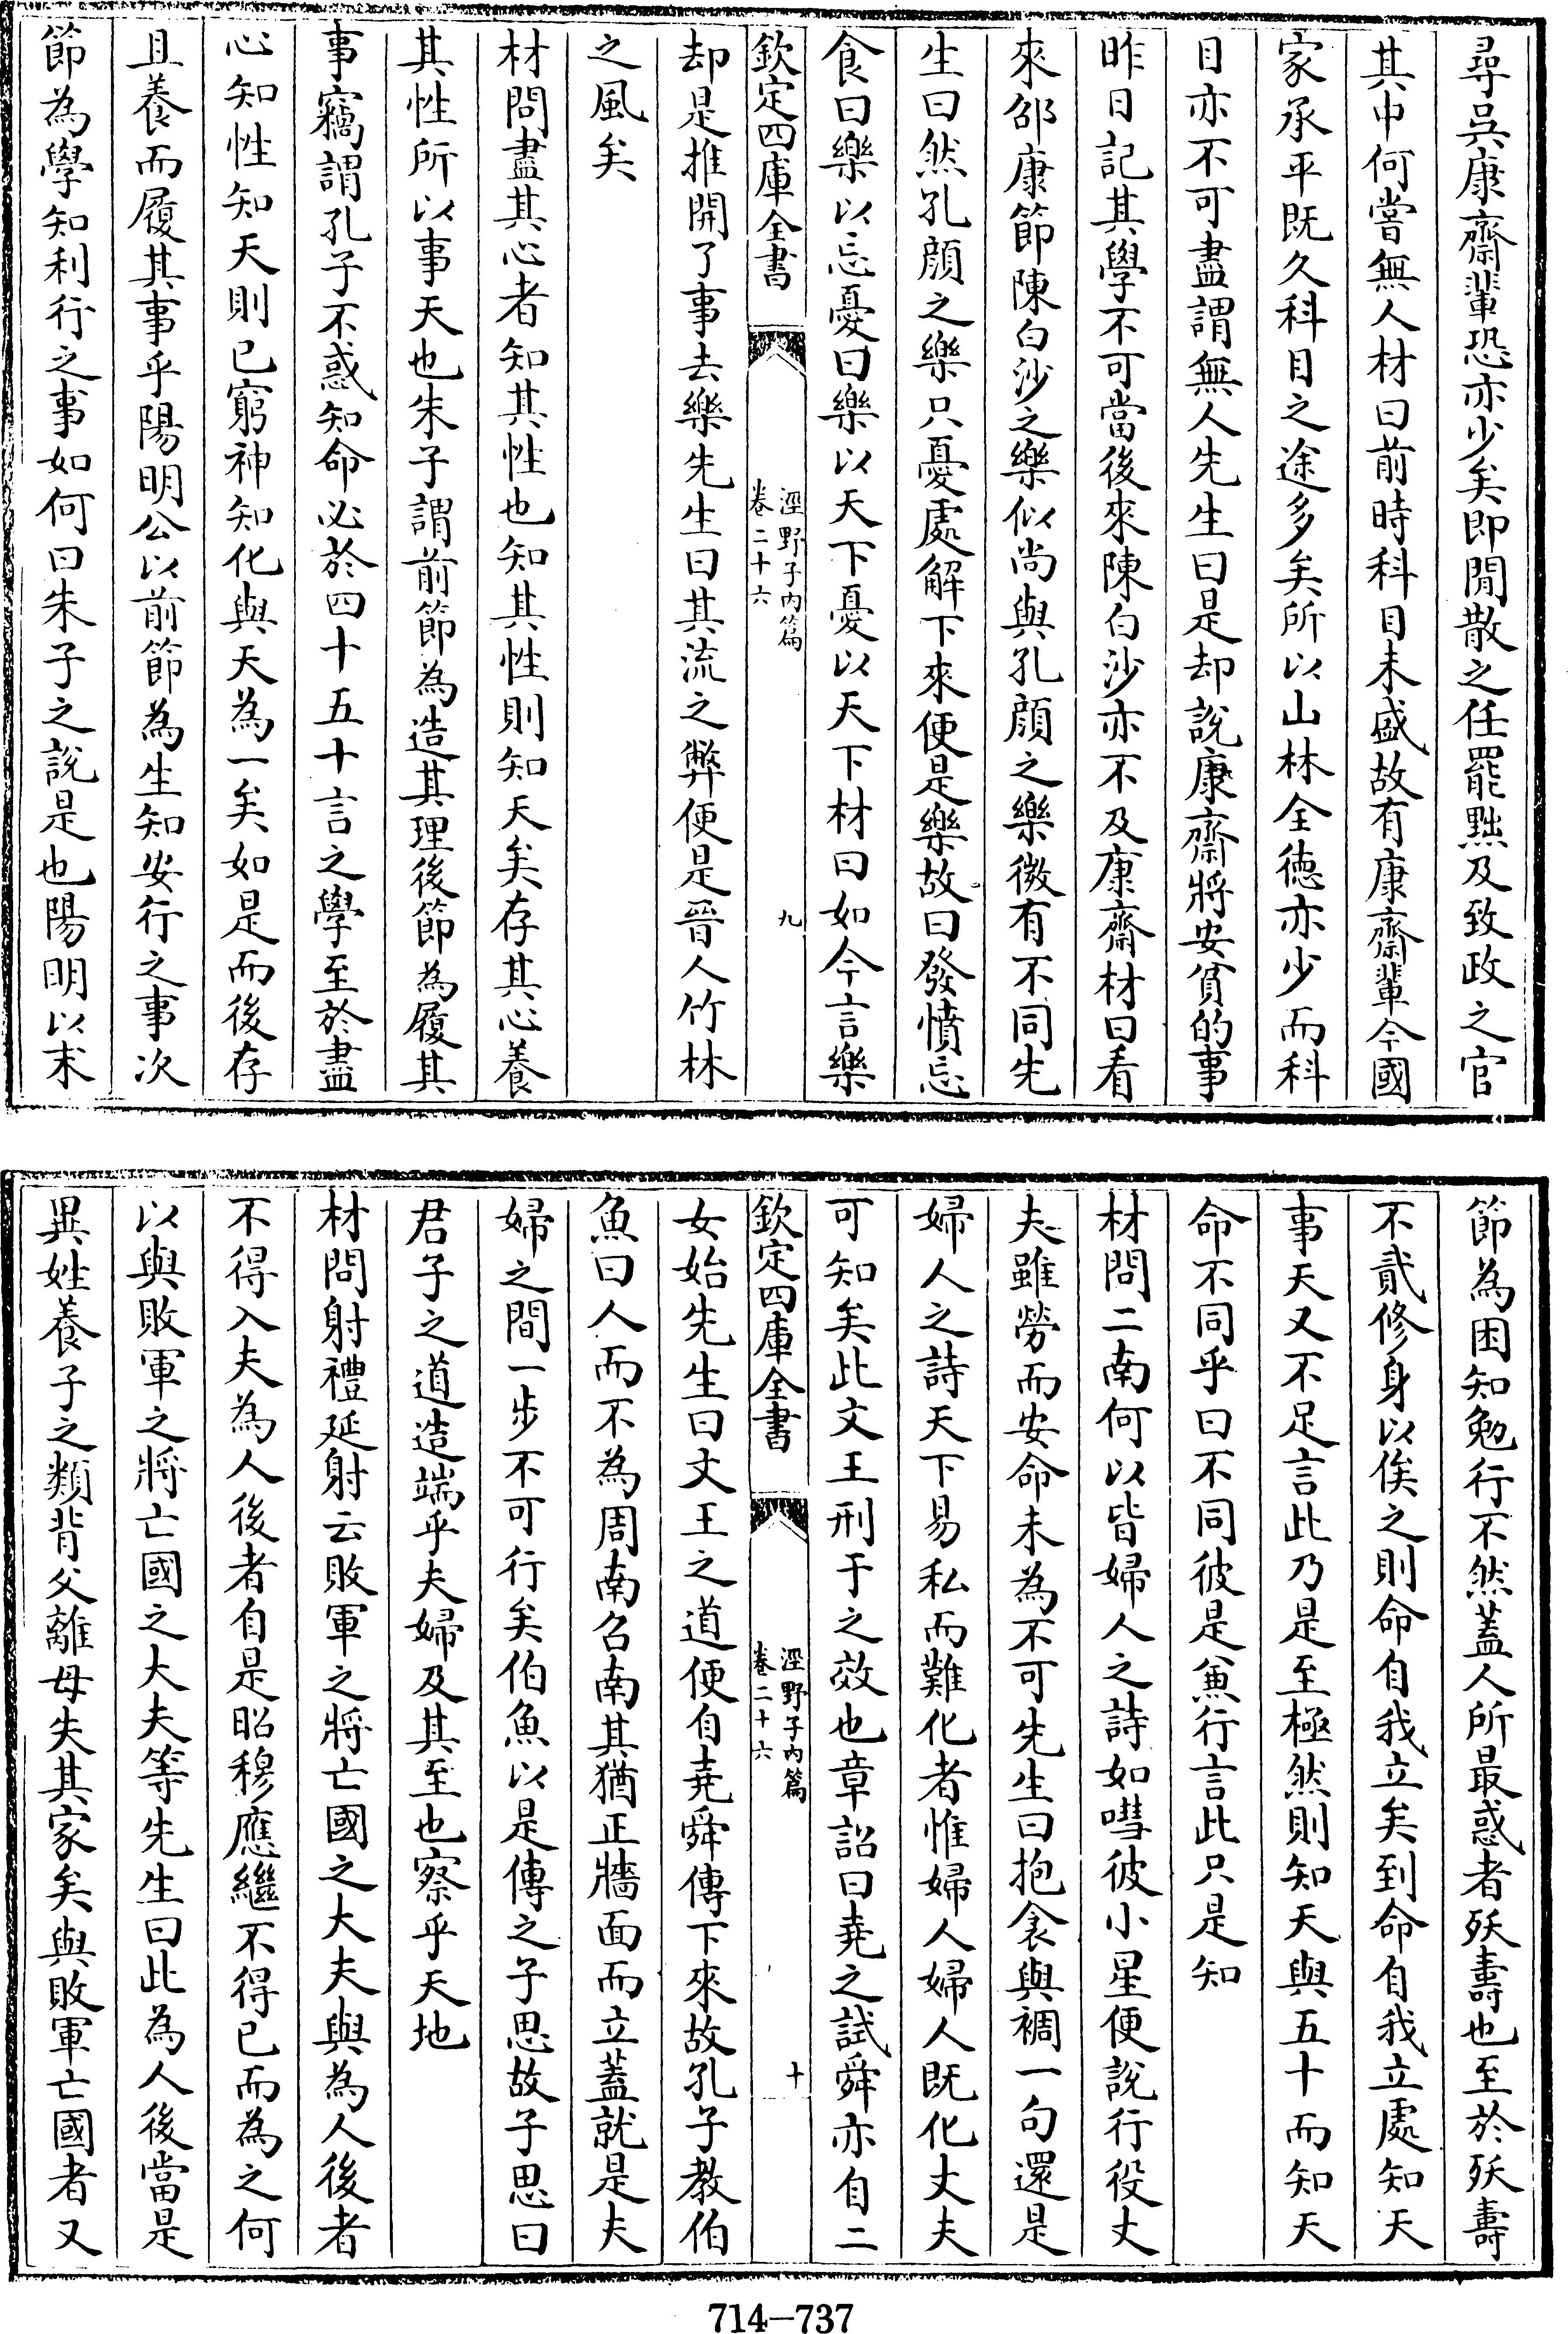 尋吳康齋輩恐亦少矣即閒散之任罷黜及致政之官
其中何嘗無人材曰前時科目未盛故有康齋輩今國
家承平既久科目之途多矣所以山林全徳亦少而科
目亦不可盡謂無人先生曰是却說康齋將安貧的事
昨日記其學不可當後來陳白沙亦不及康齋材曰看
來邵康節陳白沙之樂似尚與孔顔之樂微有不同先
生曰然孔顔之樂只憂處解下來便是樂故曰發憤忘
食曰樂以忘憂曰樂以天下憂以天下材曰如今言樂
欽定四庫全書
涇野子内篇
卷二十六
九
却是推開了事去樂先生曰其流之弊便是晉人竹林
之風矣
材問盡其心者知其性也知其性則知天矣存其心養
其性所以事天也朱子謂前節為造其理後節為履其
事竊謂孔子不惑知命必於四十五十言之學至於盡
心知性知天則已窮神知化與天為一矣如是而後存
且養而履其事乎陽明公以前節為生知安行之事次
節為學知利行之事如何曰朱子之說是也陽明以末
節為困知勉行不然蓋人所最惑者殀壽也至於殀壽
不貳修身以俟之則命自我立矣到命自我立處知天
事天又不足言此乃是至極然則知天與五十而知天
命不同乎曰不同彼是兼行言此只是知
材問二南何以皆婦人之詩如嘒彼小星便說行役丈
夫雖勞而安命未為不可先生曰抱衾與裯一句還是
婦人之詩天下易私而難化者惟婦人婦人既化丈夫
可知矣此文王刑于之效也章詔曰堯之試舜亦自二
欽定四庫全書
涇野子内篇
卷二十六
十
女始先生曰文王之道便自堯舜傳下來故孔子教伯
魚曰人而不為周南召南其猶正牆面而立蓋就是夫
婦之間一步不可行矣伯魚以是傳之子思故子思曰
君子之道造端乎夫婦及其至也察乎天地
材問射禮延射云敗軍之將亡國之大夫與為人後者
不得入夫為人後者自是昭穆應繼不得已而為之何
以與敗軍之將亡國之大夫等先生曰此為人後當是
異姓養子之類背父離母失其家矣與敗軍亡國者又
714-737